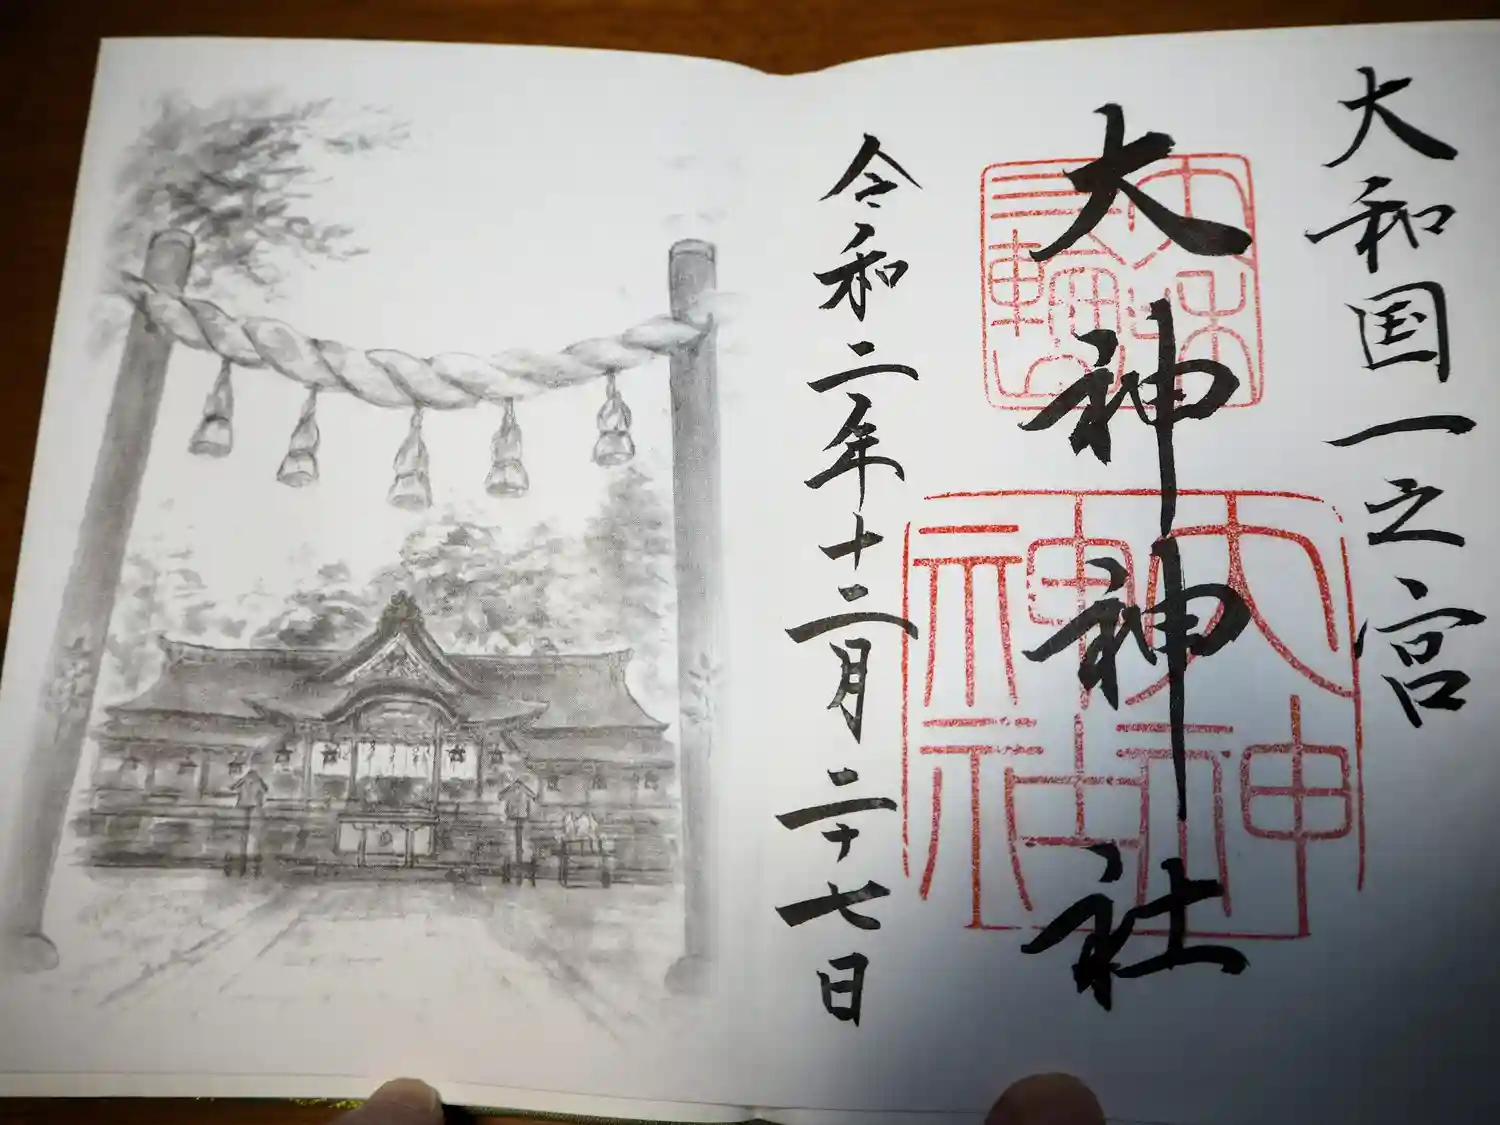 大和国一之宮
大神神社
大和
三輪山
大神
神社
令和二年十二月二十七日